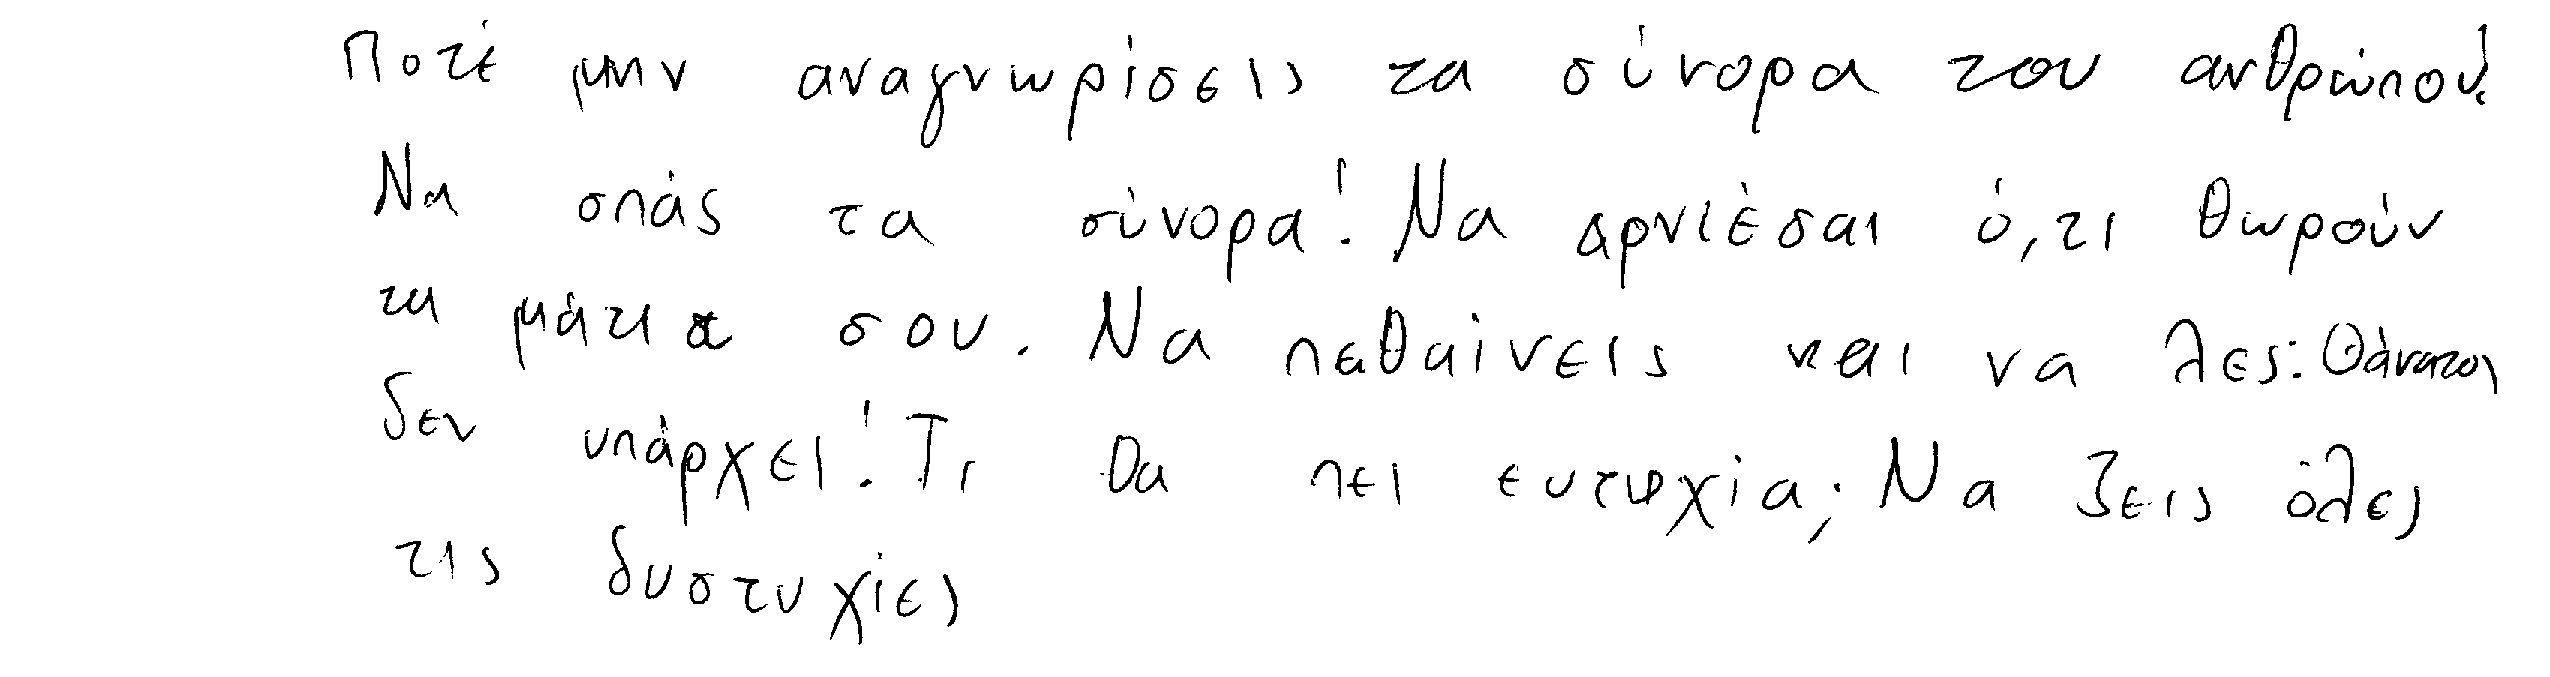 Ποτέ μην αναγνωρίσεις τα σύνορα του ανθρώπου!
Να σπάς τα σύνορα! Να αρνιέσαι ό,τι θωρούν
τα μάτια σου. Να πεθαίνεις και να λες: Θάνατος
δεν υπάρχει! Τι θα πει ευτυχία; Να ζεις όλες
τις δυστυχίες